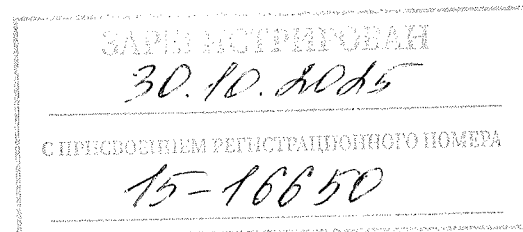 ЗАРЕГИСТРИРОВАН
30.10.2025
С ПРИСВОЕНИЕМ РЕГИСТРАЦИОННОГО НОМЕРА
15-16650